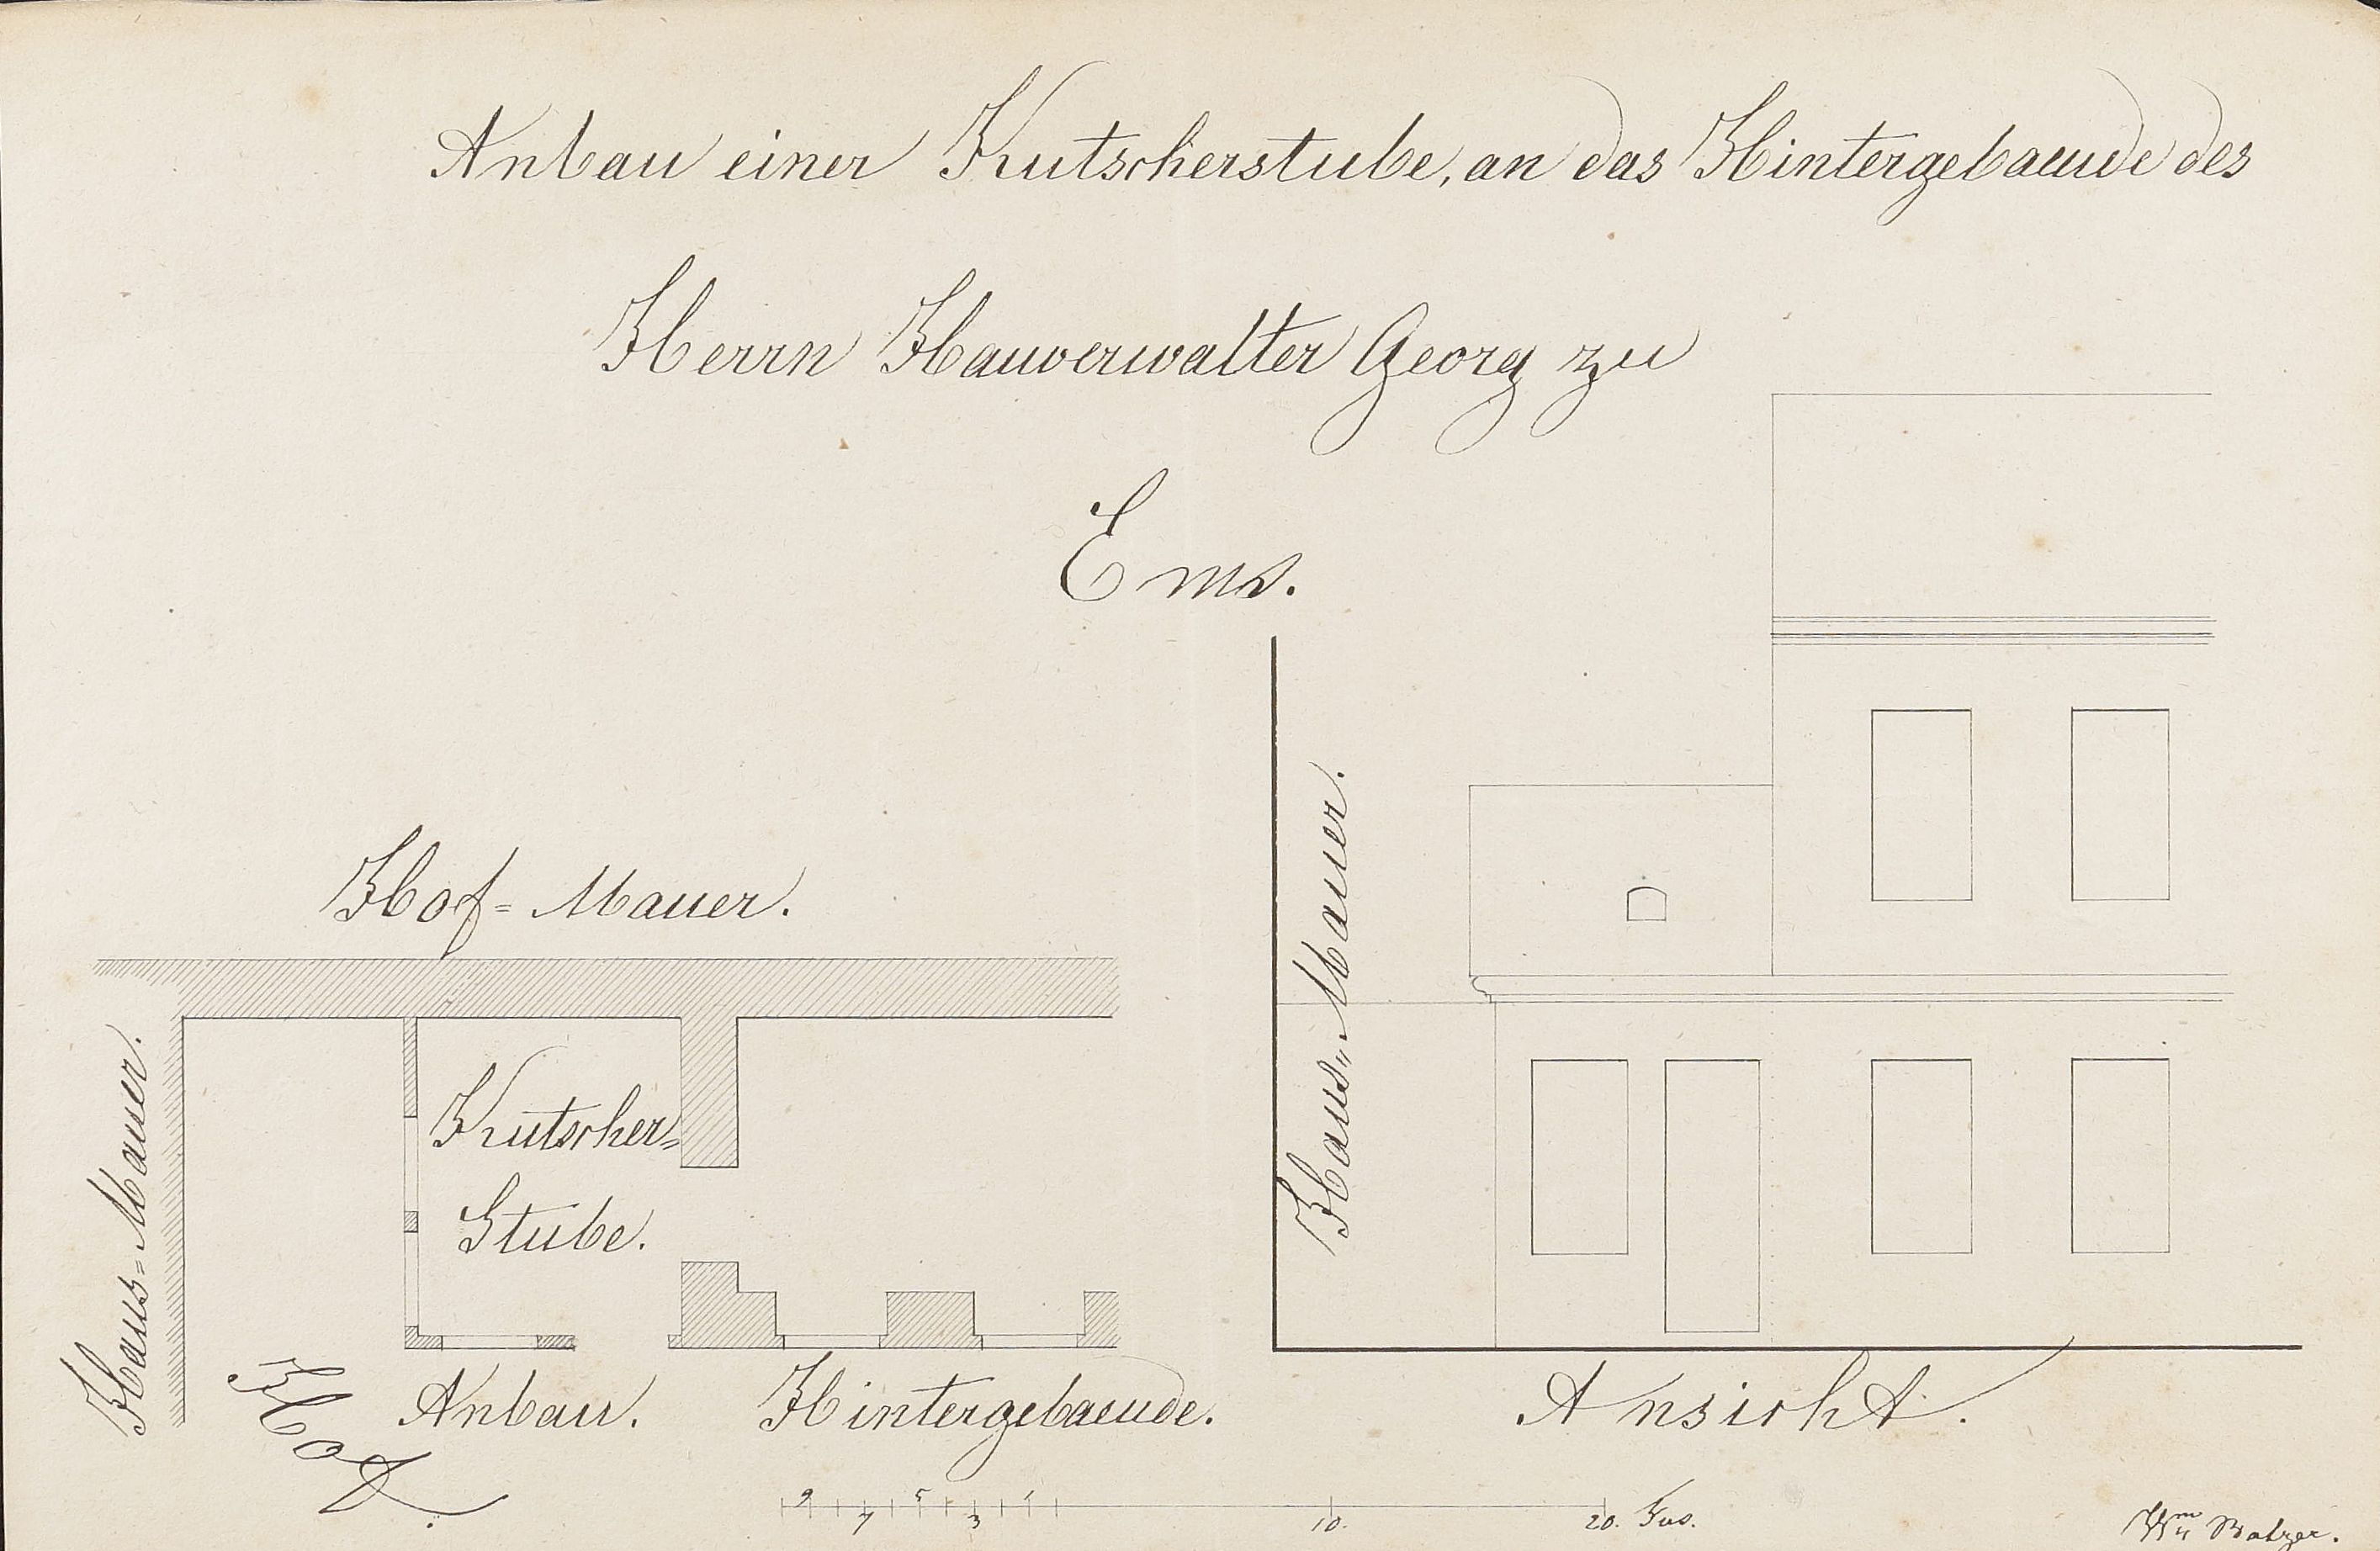 Anbau einer Kutscherstube, an das Hintergebaeude des
Herrn Hauverwalter Georg zu
Ems.
Hof=Mauer.
Haus=Mauer.
Kutscher=
Stube.
Hof.
Anbau.
Hintergebaeude.
Haus„Mauer.
Ansicht.
9 7 5 3 1 10. 20. Fus.
Wm Balzer.